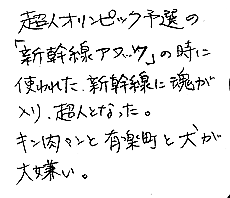 超人オリンピック予選の
「新幹線アタック」の時に
使われた新幹線に魂が
入り、超人となった。
キン肉マンと有楽町と犬が
大嫌い。